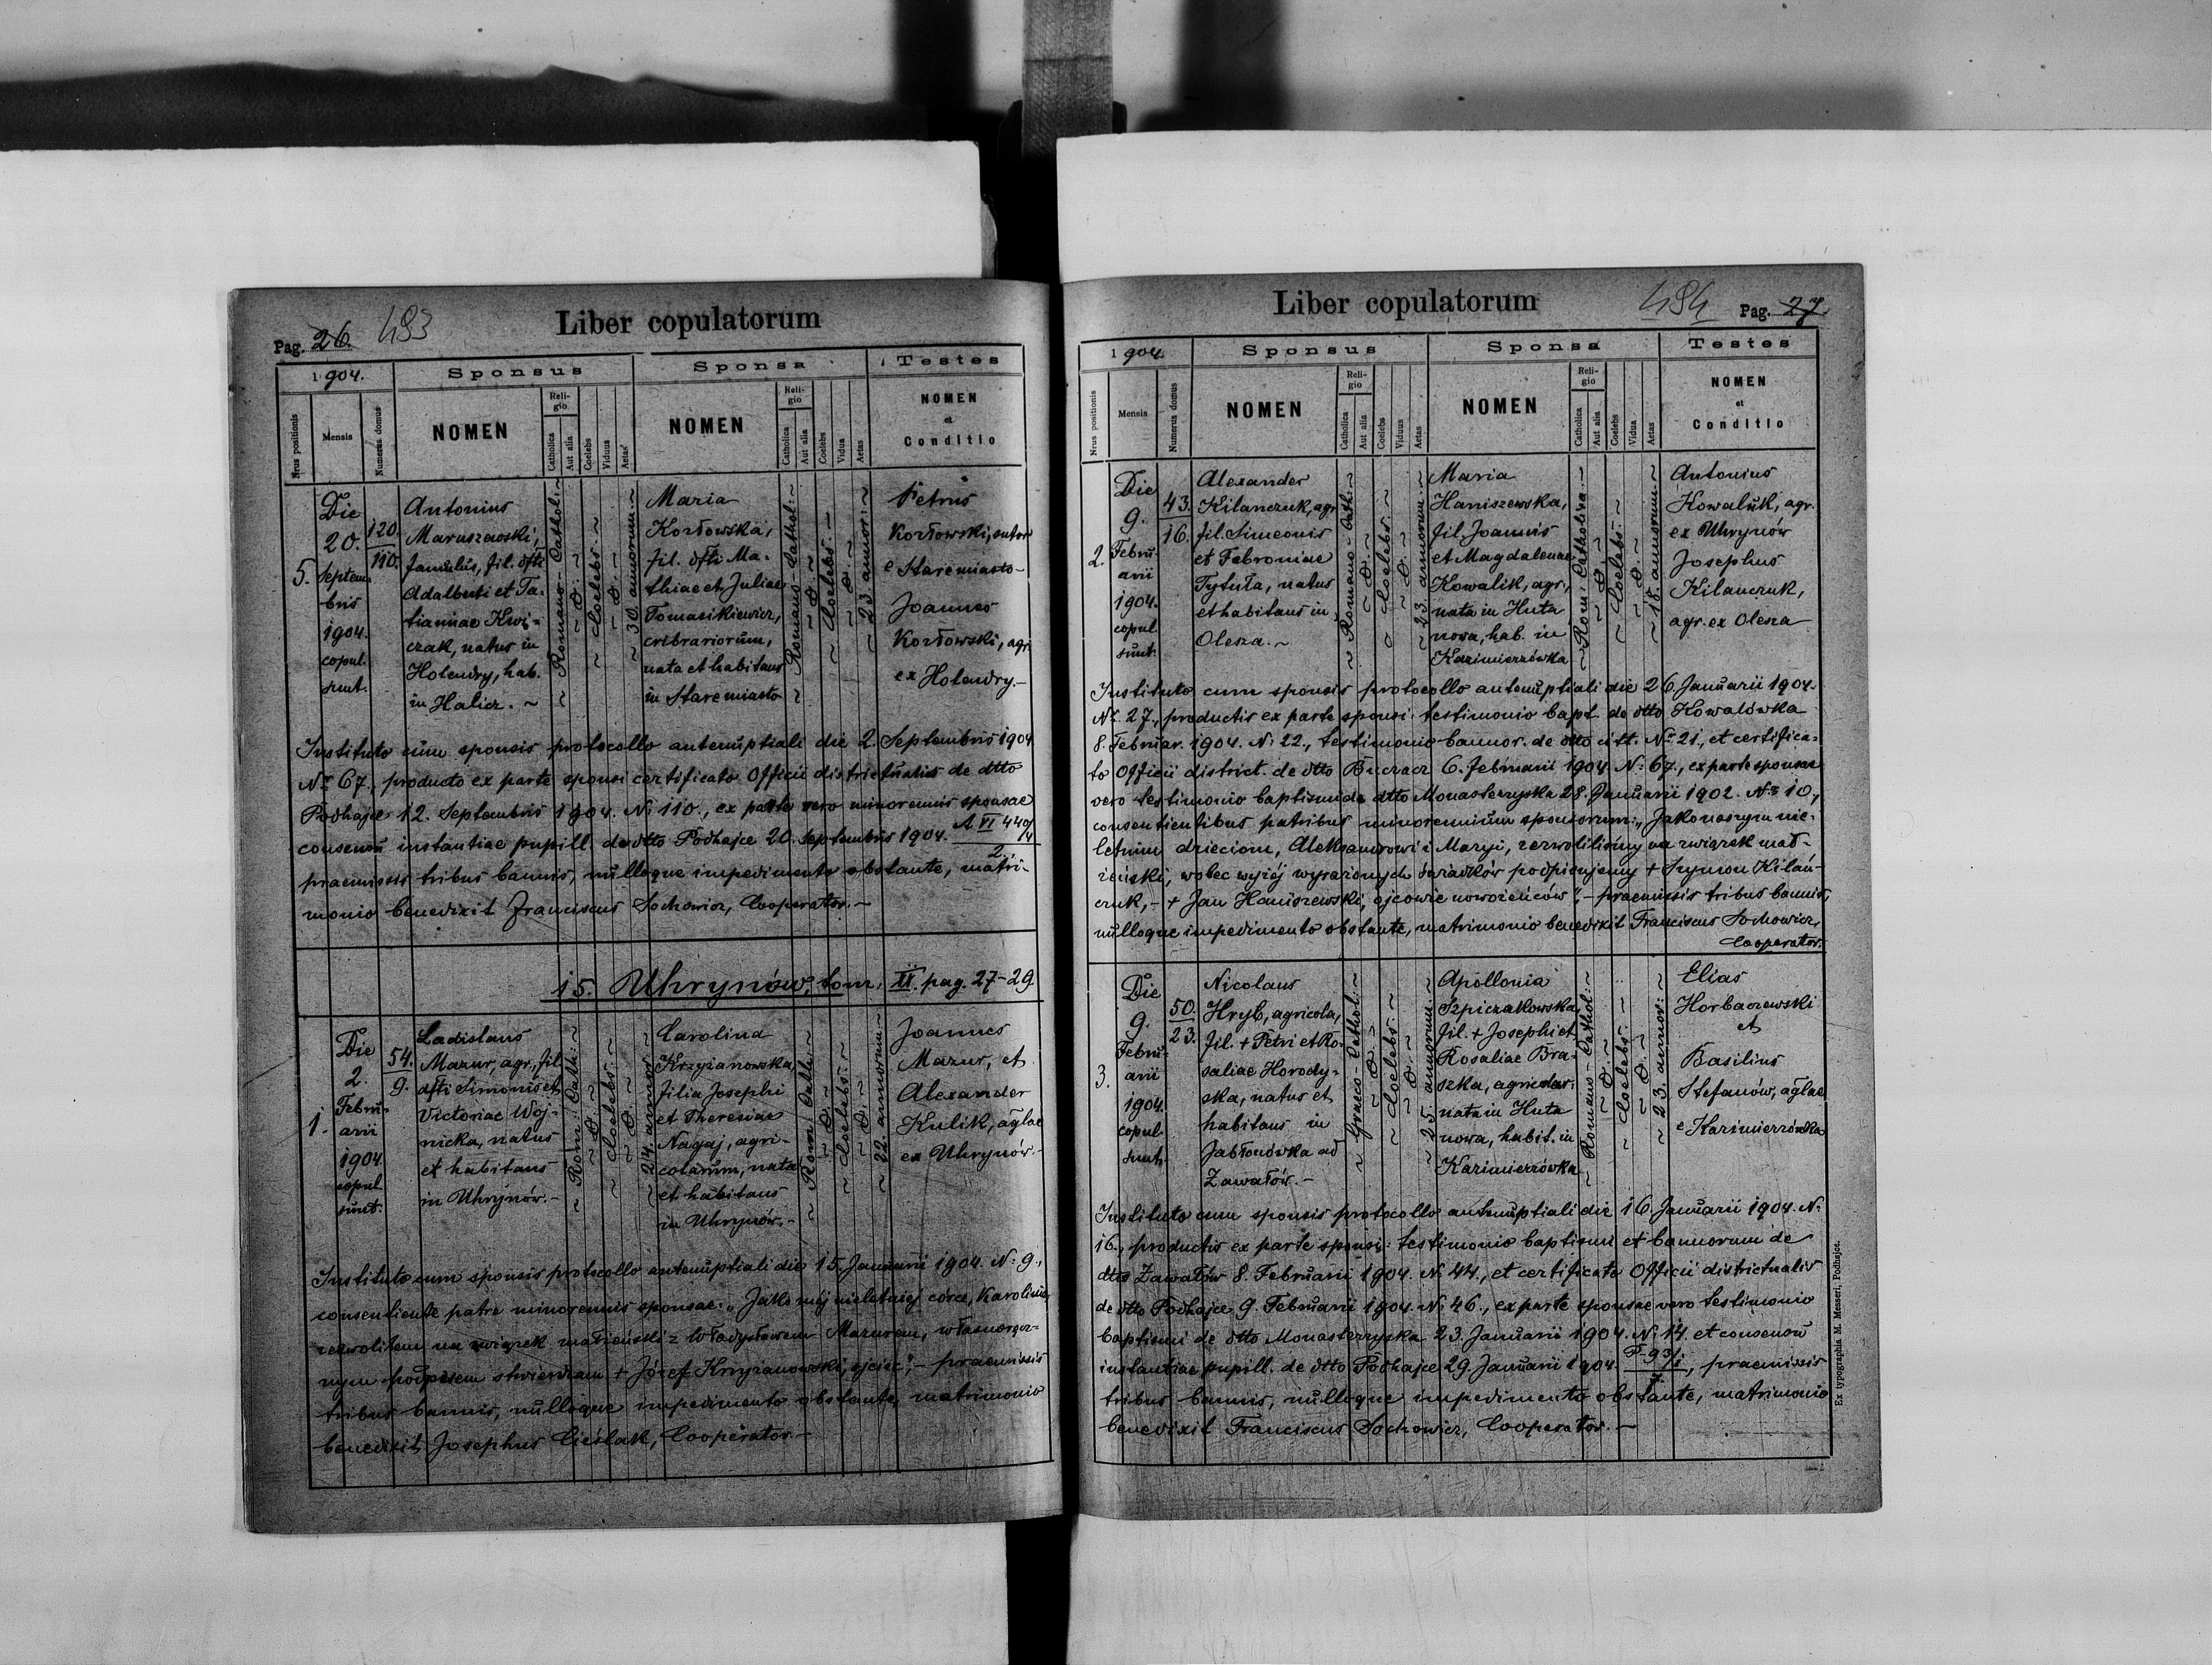 Liber copulatorum
Pag. 26. 483
1904. Sponsus Sponsa Testes
Nrus positionis Mensis Numerus domus NOMEN Religio Catholica Aut alia Coelebs Viduus Aetas NOMEN Religio Catholica Aut alia Coelebs Vidua Aetas NOMEN et Conditio
5.
Die
20.
Septem-
bris
1904.
copul.
sunt.
120.
110.
Antonius
Maruszewski,
famulus, fil. dfti
Adalberti et Ta-
tiannae Kwi-
czak, natus in
Holendry, hab.
in Halicz. ~
~ Romano-Cathol: ~
~ O. ~
~ Coelebs ~
~ O. ~
~ 30 annorum. ~
Maria
Kozłowska,
fil. dfti Ma-
thiae et Juliae
Tomasikiewicz,
cribrariorum,
nata et habitans
in Stare miasto
~ Romano-Cathol: ~
~ O. ~
~ Coelebs. ~
~ O. ~
~ 23 annor: ~
Petrus
Kozłowski, sutor
e Stare miasto
Joannes
Kozłowski, agr.
ex Holendry.-
Instituto cum sponsis protocollo antenuptiali die 2. Septembris 1904.
Nr. 67., producto ex parte sponsi certificato Officii districtualis de dtto
Podhajce 12. Septembris 1904. N. 110., ex parte vero minorennis sponsae
consensu instantiae pupill. de dtto Podhajce 20. Septembris 1904. A VI 440/4
2.
praemissis tribus bannis, nulloque impedimento obstante, matri-
monio benedixit Franciscus Sochowicz, Cooperator. ~
15. Uhrynów, tom. II. pag. 27-29.
1.
Die
2.
Febru-
arii
1904
copul.
sunt.
54.
9.
Ladislaus
Mazur, agr., fil.
dfti Simonis et
Victoriae Woj-
nicka, natus
et habitans
in Uhrynów.-
~ Rom: Cath: ~
~ O. ~
~ Coelebs. ~
~ O. ~
~ 24. annor. ~
Carolina
Krzyżanowska,
filia Josephi
et Theresiae
Nagaj, agri-
colarum, nata
et habitans
in Uhrynów.-
~ Rom: Cath: ~
~ O. ~
~ Coelebs. ~
~ O. ~
~ 22. annorum ~
Joannes
Mazur, et
Alexander
Kulik, aglae
ex Uhrynów-
Instituto cum sponsis protocollo antenuptiali die 15. Januarii 1904. N: 9.,
consentiente patre minorennis sponsae: „Jako mój nieletniej córce, Karolinie
zezwoliłem na związek małżeński z Władysławem Mazurem, własnoręcz-
nym podpisem stwierdzam + Józef Krzyżanowski, ojciec", - praemissis
tribus bannis, nulloque impedimento obstante, matrimonio
benedixit Josephus Cieślak, Cooperator. ~
Liber copulatorum
484 Pag. 27.
1904. Sponsus Sponsa Testes
Nrus positionis Mensis Numerus domus NOMEN Religio Catholica Aut alia Coelebs Viduus Aetas NOMEN Religio Catholica Aut alia Coelebs Vidua Aetas NOMEN et Conditio
2.
Die
9.
Febru-
arii
1904.
copul.
sunt.
43.
16.
Alexander
Kilanczuk, agr.
fil. Simeonis
et Febroniae
Tytuła, natus
et habitans in
Olesza. ~
~ Romano-Cath: ~
~ O. ~
~ Coelebs. ~
~ O. ~
~ 23. annorum. ~
Maria
Haniszewska,
fil. Joannis
et Magdalenae
Kowalik, agr.,
nata in Huta
nowa, hab. in
Kazimierzówka
~ Rom: Catholica ~
~ O. ~
~ Coelebs. ~
~ O. ~
~ 18. annorum. ~
Antonius
Kowaluk, agr.
ex Uhrynów
Josephus
Kilanczuk,
agr. ex Olesza
Instituto cum sponsis protocollo antenuptiali die 26. Januarii 1904.
Nr. 27., productis ex parte sponsi: testimonio bapt. de dtto Kowalówka
8. Februar. 1904. N: 22., testimonio bannor. de dtto citt. Nr 21., et certifica-
to Officii district. de dtto Buczacz 6. Februarii 1904. N: 67., ex parte sponsae
vero testimonio baptismi de dtto Monasterzyska 28. Januarii 1902. Nr. 10.,
consentientibus patribus minorennium sponsorum: „Jako naszym nie-
letnim dzieciom, Aleksandrowi i Maryi, zezwoliliśmy na związek mał-
żeński, wobec wyżej wyrażonych świadków podpisujemy + Szymon Kilań-
czuk, - + Jan Haniszewski, ojcowie nowożeńców", - praemissis tribus bannis,
nulloque impedimento obstante, matrimonio benedixit Franciscus Sochowicz,
Cooperator.
3.
Die
9.
Febru-
arii
1904
copul.
sunt.
50.
23.
Nicolaus
Hryb, agricola,
fil. + Petri et Ro-
saliae Horody-
ska, natus et
habitans in
Jabłonówka ad
Zawałów.-
~ Graeco-Cathol: ~
~ O. ~
~ Coelebs. ~
~ O. ~
~ 25. annorum: ~
Apollonia
Szpiczakowska,
fil. + Josephi et
Rosaliae Bra-
szka, agricolar.
nata in Huta
nowa, habit. in
Kazimierzówka
~ Romano-Cathol: ~
~ O. ~
~ Coelebs. ~
~ O. ~
~ 23. annor: ~
Elias
Horbaczewski
et
Basilius
Stefanów, aglae
e Kazimierzówka
Instituto cum sponsis protocollo antenuptiali die 16. Januarii 1904. N.
16., productis ex parte sponsi: testimonio baptismi et bannorum de
dtto Zawałów 8. Februarii 1904. N. 44., et certificato Officii districtualis
de dtto Podhajce 9. Februarii 1904. N: 46., ex parte sponsae vero testimonio
baptismi de dtto Monasterzyska 23. Januarii 1904. N: 14. et consensu
instantiae pupill. de dtto Podhajce 29. Januarii 1904. , praemissis
tribus bannis, nulloque impedimento obstante, matrimonio
benedixit Franciscus Sochowicz, Cooperator. ~
Ex typographia M. Messeri, Podhajce.